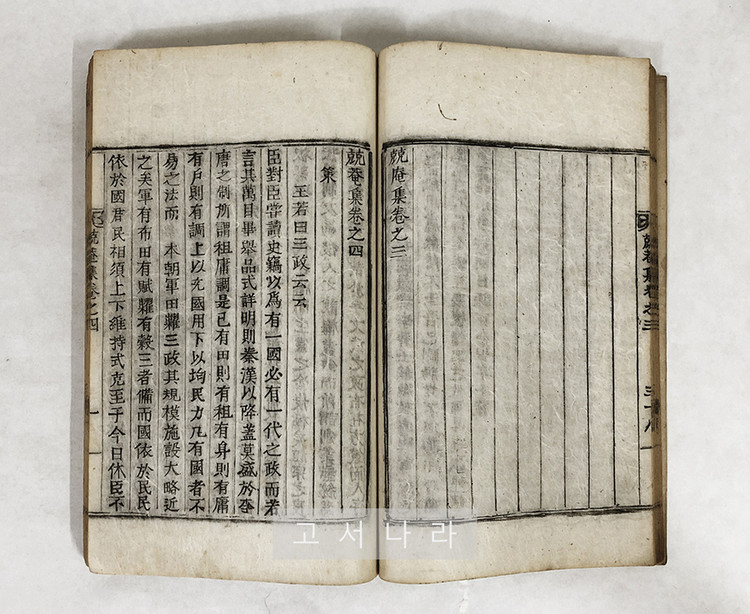 兢菴集卷之三 三十八
兢庵集卷之三
兢菴集卷之四
策
王若曰三政云云
臣對臣嘗讀史竊以爲有一國必有一代之政而若
言其萬目畢擧品式詳明則秦漢以降盖莫盛於李
唐之制所謂租庸調是已有田則有租有身則有庸
有戶則有調上以充國用下以均民力凡有國者不
易之法而 本朝軍田糶三政其規模施設大略近
之矣軍有布田有賦糶有穀三者備而國依於民民
依於國君民相須上下維持式克至于今日休臣不
兢菴集卷之四 一
고서나라